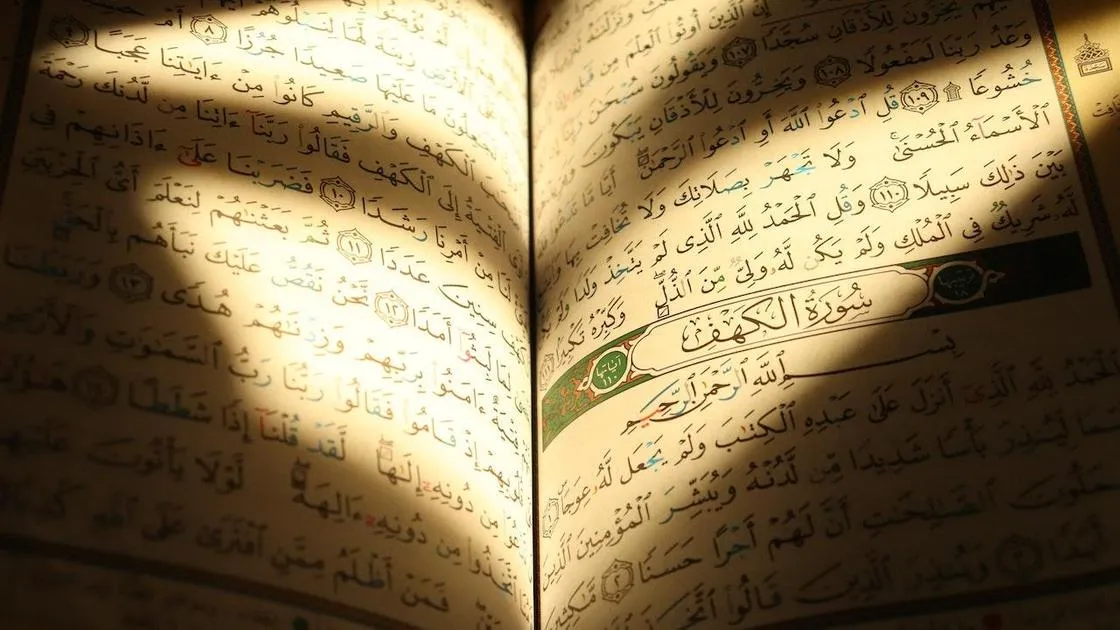 إِنَّ ٱلَّذِينَ أُوتُوا۟ ٱلْعِلْمَ مِن قَبْلِهِۦٓ
يَخِرُّونَ لِلْأَذْقَانِ سُجَّدًا ١٠٧ وَيَقُولُونَ سُبْحَٰنَ رَبِّنَآ
وَعْدُ رَبِّنَا لَمَفْعُولًا ١٠٨ وَيَخِرُّونَ لِلْأَذْقَانِ يَبْكُونَ
خُشُوعًا ١٠٩ قُلِ ٱدْعُوا۟ ٱللَّهَ أَوِ ٱدْعُوا۟ ٱلرَّحْمَٰنَ أَيًّا مَّا
ٱلْأَسْمَآءُ ٱلْحُسْنَىٰ وَلَا تَجْهَرْ بِصَلَاتِكَ وَلَا تُخَافِتْ بِهَا
بَيْنَ ذَٰلِكَ سَبِيلًا ١١٠ وَقُلِ ٱلْحَمْدُ لِلَّهِ ٱلَّذِى لَمْ يَتَّخِذْ وَلَدًا
لَّهُۥ شَرِيكٌ فِى ٱلْمُلْكِ وَلَمْ يَكُن لَّهُۥ وَلِىٌّ مِّنَ ٱلذُّلِّ وَكَبِّرْهُ تَكْبِيرًا
سُورَةُ الكَهْفِ آياتها ١١٠
بِسْمِ ٱللَّهِ ٱلرَّحْمَٰنِ ٱلرَّحِيمِ
ٱلْحَمْدُ لِلَّهِ ٱلَّذِىٓ أَنزَلَ عَلَىٰ عَبْدِهِ ٱلْكِتَٰبَ وَلَمْ يَجْعَل لَّهُۥ عِوَجَا ١
لِّيُنذِرَ بَأْسًا شَدِيدًا مِّن لَّدُنْهُ وَيُبَشِّرَ ٱلْمُؤْمِنِينَ ٱلَّذِينَ
ٱلصَّٰلِحَٰتِ أَنَّ لَهُمْ أَجْرًا حَسَنًا ٢ مَّٰكِثِينَ
أَبَدًا ٣ وَيُنذِرَ ٱلَّذِينَ قَالُوا۟ ٱتَّخَذَ
زِينَةً لَّهَا لِنَبْلُوَهُمْ
مَا عَلَيْهَا صَعِيدًا جُرُزًا ٨ أَمْ
ٱلْكَهْفِ وَٱلرَّقِيمِ كَانُوا۟ مِنْ ءَايَٰتِنَا عَجَبًا ٩
ٱلْفِتْيَةُ إِلَى ٱلْكَهْفِ فَقَالُوا۟ رَبَّنَآ ءَاتِنَا مِن لَّدُنكَ رَحْمَةً
لَنَا مِنْ أَمْرِنَا رَشَدًا ١٠ فَضَرَبْنَا عَلَىٰٓ ءَاذَانِهِمْ فِى
ٱلْكَهْفِ سِنِينَ عَدَدًا ١١ ثُمَّ بَعَثْنَٰهُمْ لِنَعْلَمَ أَىُّ ٱلْحِزْبَيْنِ
لِمَا لَبِثُوٓا۟ أَمَدًا ١٢ نَّحْنُ نَقُصُّ عَلَيْكَ نَبَأَهُم بِٱلْحَقِّ
فِتْيَةٌ ءَامَنُوا۟ بِرَبِّهِمْ وَزِدْنَٰهُمْ هُدًى ١٣ وَرَبَطْنَا
قُلُوبِهِمْ إِذْ قَامُوا۟ فَقَالُوا۟ رَبُّنَا رَبُّ ٱلسَّمَٰوَٰتِ وَٱلْأَرْضِ
مِن دُونِهِۦٓ إِلَٰهًا لَّقَدْ قُلْنَآ إِذًا شَطَطًا ١٤ هَٰٓؤُلَآءِ
ٱتَّخَذُوا۟ مِن دُونِهِۦٓ ءَالِهَةً لَّوْلَا يَأْتُونَ عَلَيْهِم
فَمَنْ أَظْلَمُ مِمَّنِ ٱفْتَرَىٰ عَلَى ٱللَّهِ كَذِبًا